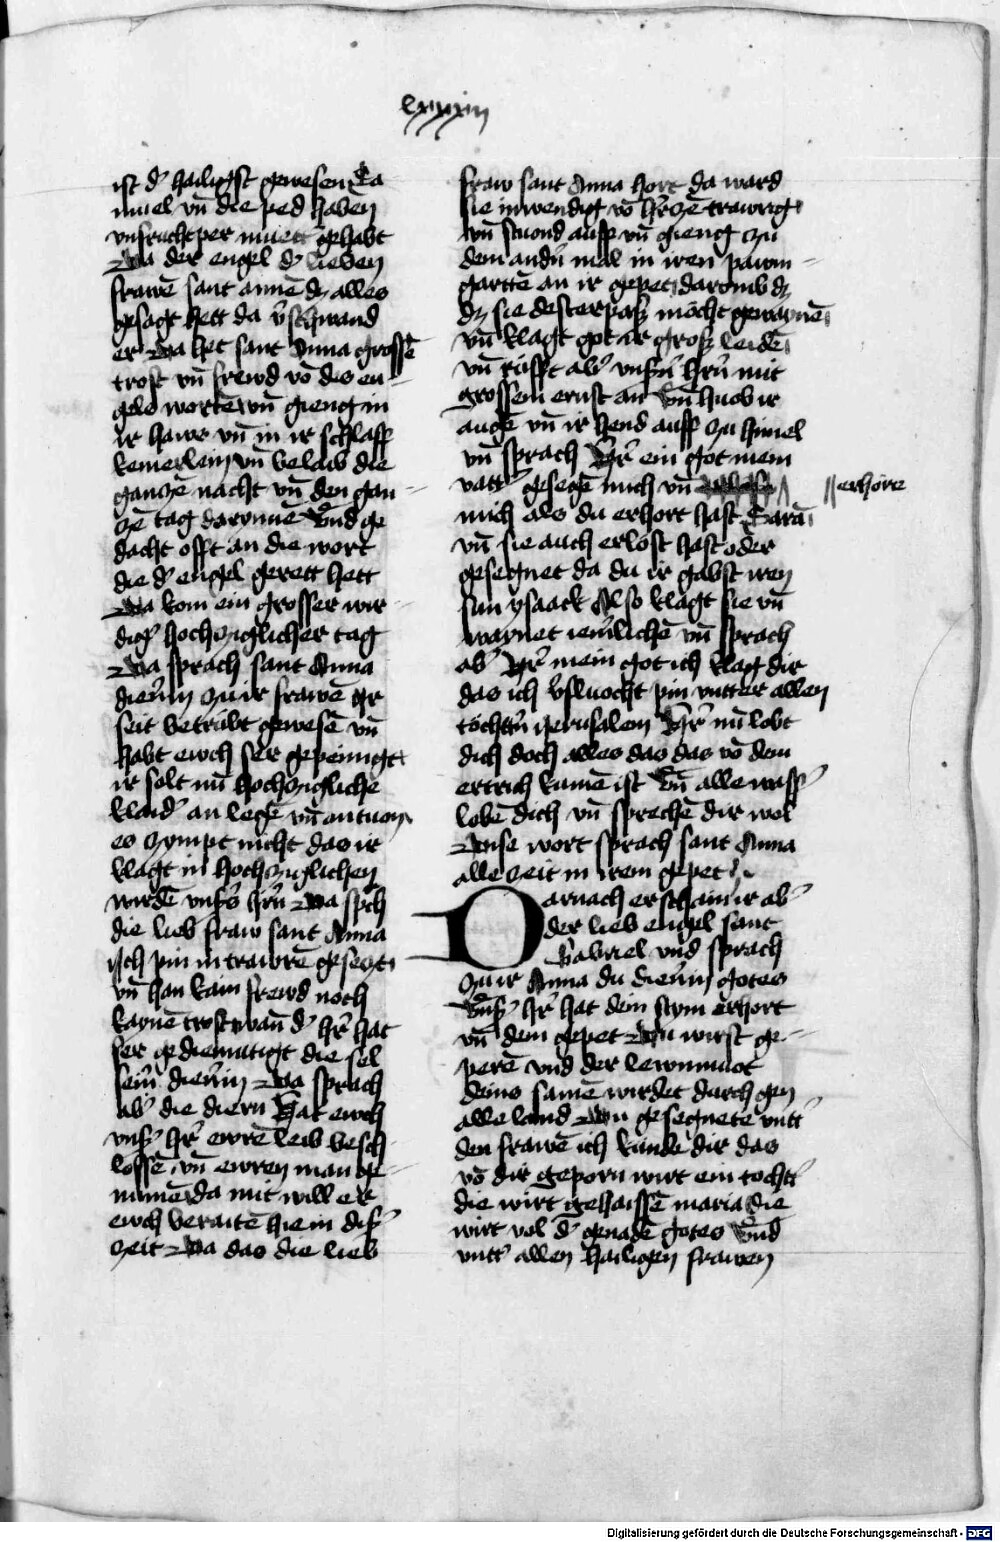 lxxxxiii
ist d' hailigst gewesen Sa
muel vn̄ die ped haben
vnfruchtper muett gehabt
Da der engel d' lieben
frawē sant annē dz alles
gesagt hett da v'schwand
er Da het sant Anna grossē
trost vn̄ frewd vō des en-
gels wortē vn̄ gieng in
ir haws vn̄ in ir schlaff
kemerlein vn̄ belaib die
ganczē nacht vn̄ den gan-
czē tag darynnē Vnd ge
dacht offt an die wort
die d' engel gerett hett
Da kom ein grosser wir-
dig' hochzziglicher tag
Da sprach sant Anna
diern̄in zu ir frawē Ir
seit betrübt gewesē vn̄
habt ewch ser gepeinigt
ir solt nū hochzzigliche
klaid' an legē vn̄ an tuon
es zympt nicht das ir
klagt in hochzziglichen
wirdē vnsers hrn̄ Da spch
die lieb fraw sant Anna
Ich pin in trawrē geseczt
vn̄ han kain frewd noch
kaynē trost wan̄ d' hr̄ hat
ser gediemutigt die sel
sein' diern̄in Da sprach
ab' die diern Hat ewch
vns' hr̄ ewrē leib besch-
lossē vn̄ ewren man ge-
numē da mit will er
ewch beraitē hie in dis'
zeit Da das die lieb
fraw sant Anna hort da ward
sie inwendig vō hr̄czē trawrig
vn̄ stuond auff vn̄ gieng zu
dem andn̄ mal in iren pawm-
gartē an ir gepet daromb dz
dz sie dester pas möcht gewaynē
vn̄ klagt got ir gros leidē
vn̄ rüfft ab' vnsn̄ hrn̄ mit
grossem ernst an Vn̄ huob ir
augē vn̄ ir hend auff zu himel
vn̄ sprach Hr̄ ein got mein
vatt' gesegē mich vn̄
erhöre
mich als du erhort hast Sarā
vn̄ sie auch erlöst hast oder
gesegnet da du ir gabst iren
sun ysaack Also klagt sie vn̄
waynet iem̄lichē vn̄ sprach
ab' Hr̄ mein got ich klag dir
das ich v'fluocht pin vntter allen
töchttn̄ iherusalem Hr̄ nū lobt
dich doch alles das das vō dem
ertrich kumē ist Vn̄ alle wass'
lobē dich vn̄ sprechē dir wol
Dise wort sprach sant Anna
alle zeit in irem gepet
Darnach erschain ir ab'
der lieb engel sant
Gabriel vnd sprach
zu ir Anna du diern̄in gotes
Vns' hr̄ hat dein stym erhort
vn̄ dem gepet Du wirst ge-
perē vnd der lewnmuot
deins samē wirdet durch gen
alle land Du gesegnete vntt'
den frawē ich künde dir das
vō dir geporn wirt ein tocht'
die wirt gehaissē maria die
wirt vol d' genadē gotes Vnd
vntt' allen hailigen frawen
Digitalisierung gefördert durch die Deutsche Forschungsgemeinschaft - DFG